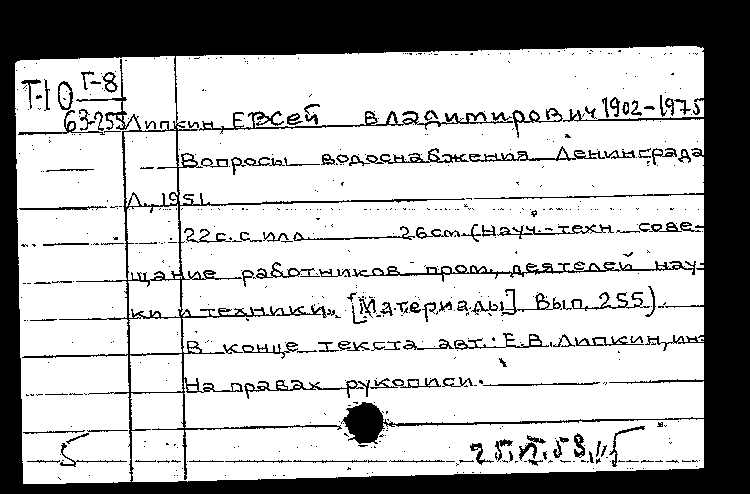 Г-8
Т-10
63-255 Липкин, Евсей Владимирович 1902-1975
Вопросы водоснабжения Ленинграда
Л., 1951.
22 с. с илл. 26 см. (Науч.-техн. сове-
щание работников пром., деятелей нау-
ки и техники. [Материалы]. Вып. 255).
В конце текста авт.: Е.В. Липкин, инж
На правах рукописи.